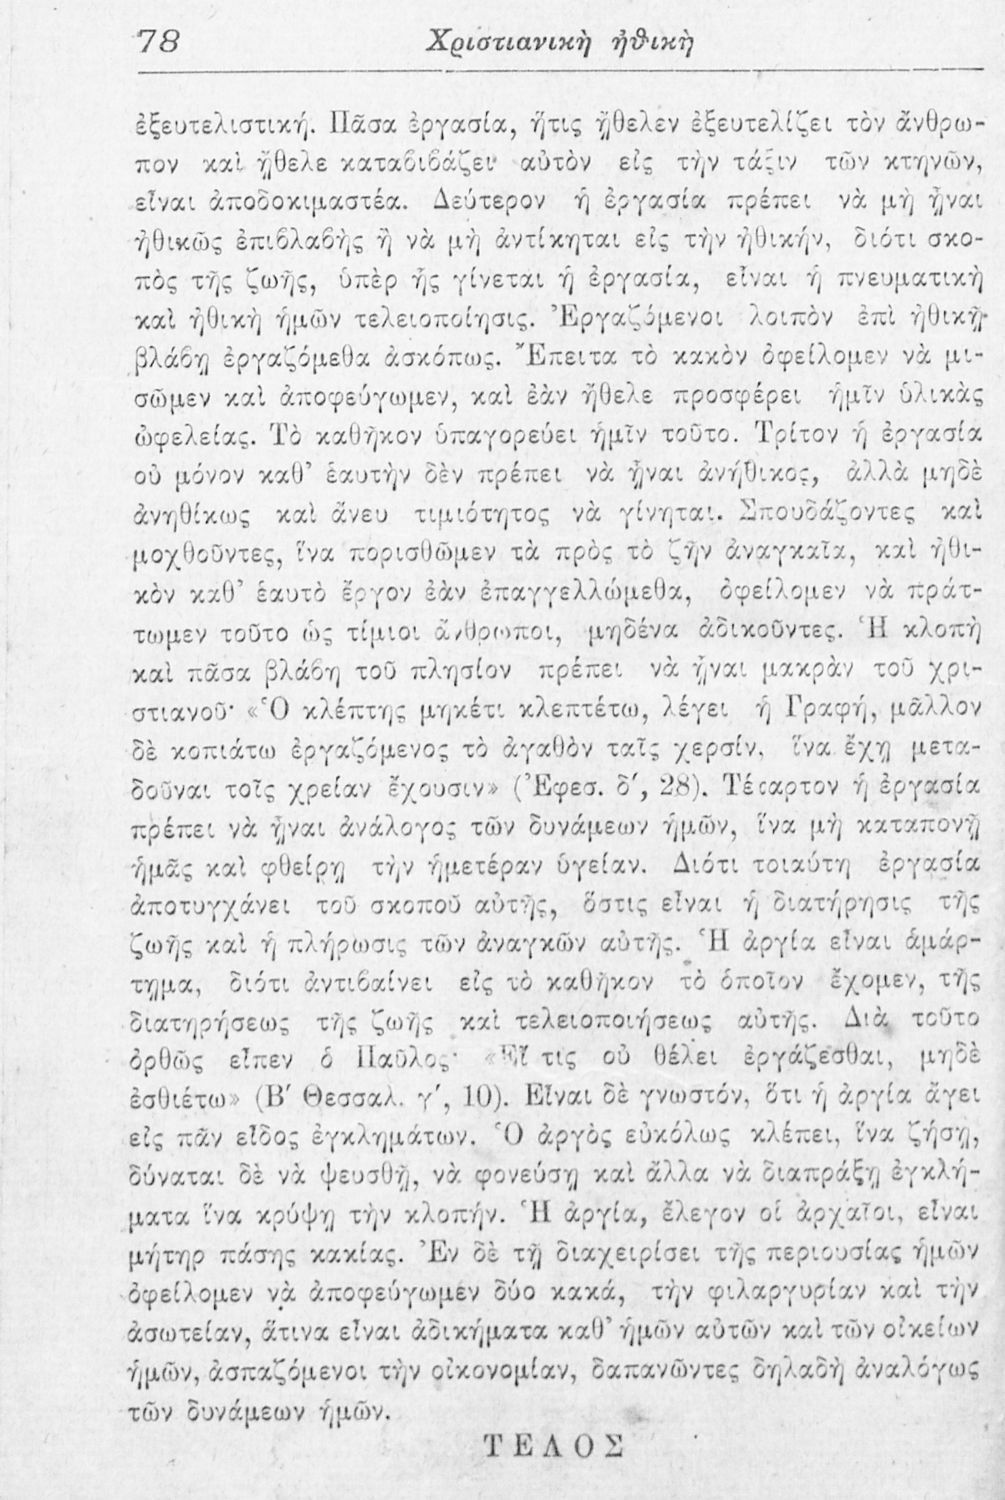 78 Χριστιανικὴ ἠθικὴ
ἐξευτελιστική. Πᾶσα ἐργασία, ἥτις ἤθελεν ἐξευτελίζει τὸν ἄνθρω-
πον καὶ ἤθελε καταβιβάζει αὐτὸν εἰς τὴν τάξιν τῶν κτηνῶν,
εἶναι ἀποδοκιμαστέα. Δεύτερον ἡ ἐργασία πρέπει νὰ μὴ ᾖναι
ἠθικῶς ἐπιβλαβὴς ἢ νὰ μὴ ἀντίκηται εἰς τὴν ἠθικήν, διότι σκο-
πὸς τῆς ζωῆς, ὑπὲρ ἧς γίνεται ἡ ἐργασία, εἶναι ἡ πνευματικὴ
καὶ ἠθικὴ ἡμῶν τελειοποίησις. Ἐργαζόμενοι λοιπὸν ἐπὶ ἠθικῇ
βλάβῃ ἐργαζόμεθα ἀσκόπως. Ἔπειτα τὸ κακὸν ὀφείλομεν νὰ μι-
σῶμεν καὶ ἀποφεύγωμεν, καὶ ἐὰν ἤθελε προσφέρει ἡμῖν ὑλικὰς
ὠφελείας. Τὸ καθῆκον ὑπαγορεύει ἡμῖν τοῦτο. Τρίτον ἡ ἐργασία
οὐ μόνον καθ’ ἑαυτὴν δὲν πρέπει νὰ ᾖναι ἀνήθικος, ἀλλὰ μηδὲ
ἀνηθίκως καὶ ἄνευ τιμιότητος νὰ γίνηται. Σπουδάζοντες καὶ
μοχθοῦντες, ἵνα πορισθῶμεν τὰ πρὸς τὸ ζῆν ἀναγκαῖα, καὶ ἠθι-
κὸν καθ’ ἑαυτὸ ἔργον ἐὰν ἐπαγγελλώμεθα, ὀφείλομεν νὰ πράτ-
τωμεν τοῦτο ὡς τίμιοι ἄνθρωποι, μηδένα ἀδικοῦντες. Ἡ κλοπὴ
καὶ πᾶσα βλάβη τοῦ πλησίον πρέπει νὰ ᾖναι μακρὰν τοῦ χρι-
στιανοῦ· «Ὁ κλέπτης μηκέτι κλεπτέτω, λέγει ἡ Γραφή, μᾶλλον
δὲ κοπιάτω ἐργαζόμενος τὸ ἀγαθὸν ταῖς χερσίν, ἵνα ἔχῃ μετα-
δοῦναι τοῖς χρείαν ἔχουσιν» (Ἐφεσ. δʹ, 28). Τέσαρτον ἡ ἐργασία
πρέπει νὰ ᾖναι ἀνάλογος τῶν δυνάμεων ἡμῶν, ἵνα μὴ καταπονῇ
ἡμᾶς καὶ φθείρῃ τὴν ἡμετέραν ὑγείαν. Διότι τοιαύτη ἐργασία
ἀποτυγχάνει τοῦ σκοποῦ αὐτῆς, ὅστις εἶναι ἡ διατήρησις τῆς
ζωῆς καὶ ἡ πλήρωσις τῶν ἀναγκῶν αὐτῆς. Ἡ ἀργία εἶναι ἁμάρ-
τημα, διότι ἀντιβαίνει εἰς τὸ καθῆκον τὸ ὁποῖον ἔχομεν, τῆς
διατηρήσεως τῆς ζωῆς καὶ τελειοποιήσεως αὐτῆς. Διὰ τοῦτο
ὀρθῶς εἶπεν ὁ Παῦλος· «Εἴ τις οὐ θέλει ἐργάζεσθαι, μηδὲ
ἐσθιέτω» (Βʹ Θεσσαλ. γʹ, 10). Εἶναι δὲ γνωστόν, ὅτι ἡ ἀργία ἄγει
εἰς πᾶν εἶδος ἐγκλημάτων. Ὁ ἀργὸς εὐκόλως κλέπει, ἵνα ζήσῃ,
δύναται δὲ νὰ ψευσθῇ, νὰ φονεύσῃ καὶ ἄλλα νὰ διαπράξῃ ἐγκλή-
ματα ἵνα κρύψῃ τὴν κλοπήν. Ἡ ἀργία, ἔλεγον οἱ ἀρχαῖοι, εἶναι
μήτηρ πάσης κακίας. Ἐν δὲ τῇ διαχειρίσει τῆς περιουσίας ἡμῶν
ὀφείλομεν νὰ ἀποφεύγωμεν δύο κακά, τὴν φιλαργυρίαν καὶ τὴν
ἀσωτείαν, ἅτινα εἶναι ἀδικήματα καθ’ ἡμῶν αὐτῶν καὶ τῶν οἰκείων
ἡμῶν, ἀσπαζόμενοι τὴν οἰκονομίαν, δαπανῶντες δηλαδὴ ἀναλόγως
τῶν δυνάμεων ἡμῶν.
ΤΕΛΟΣ